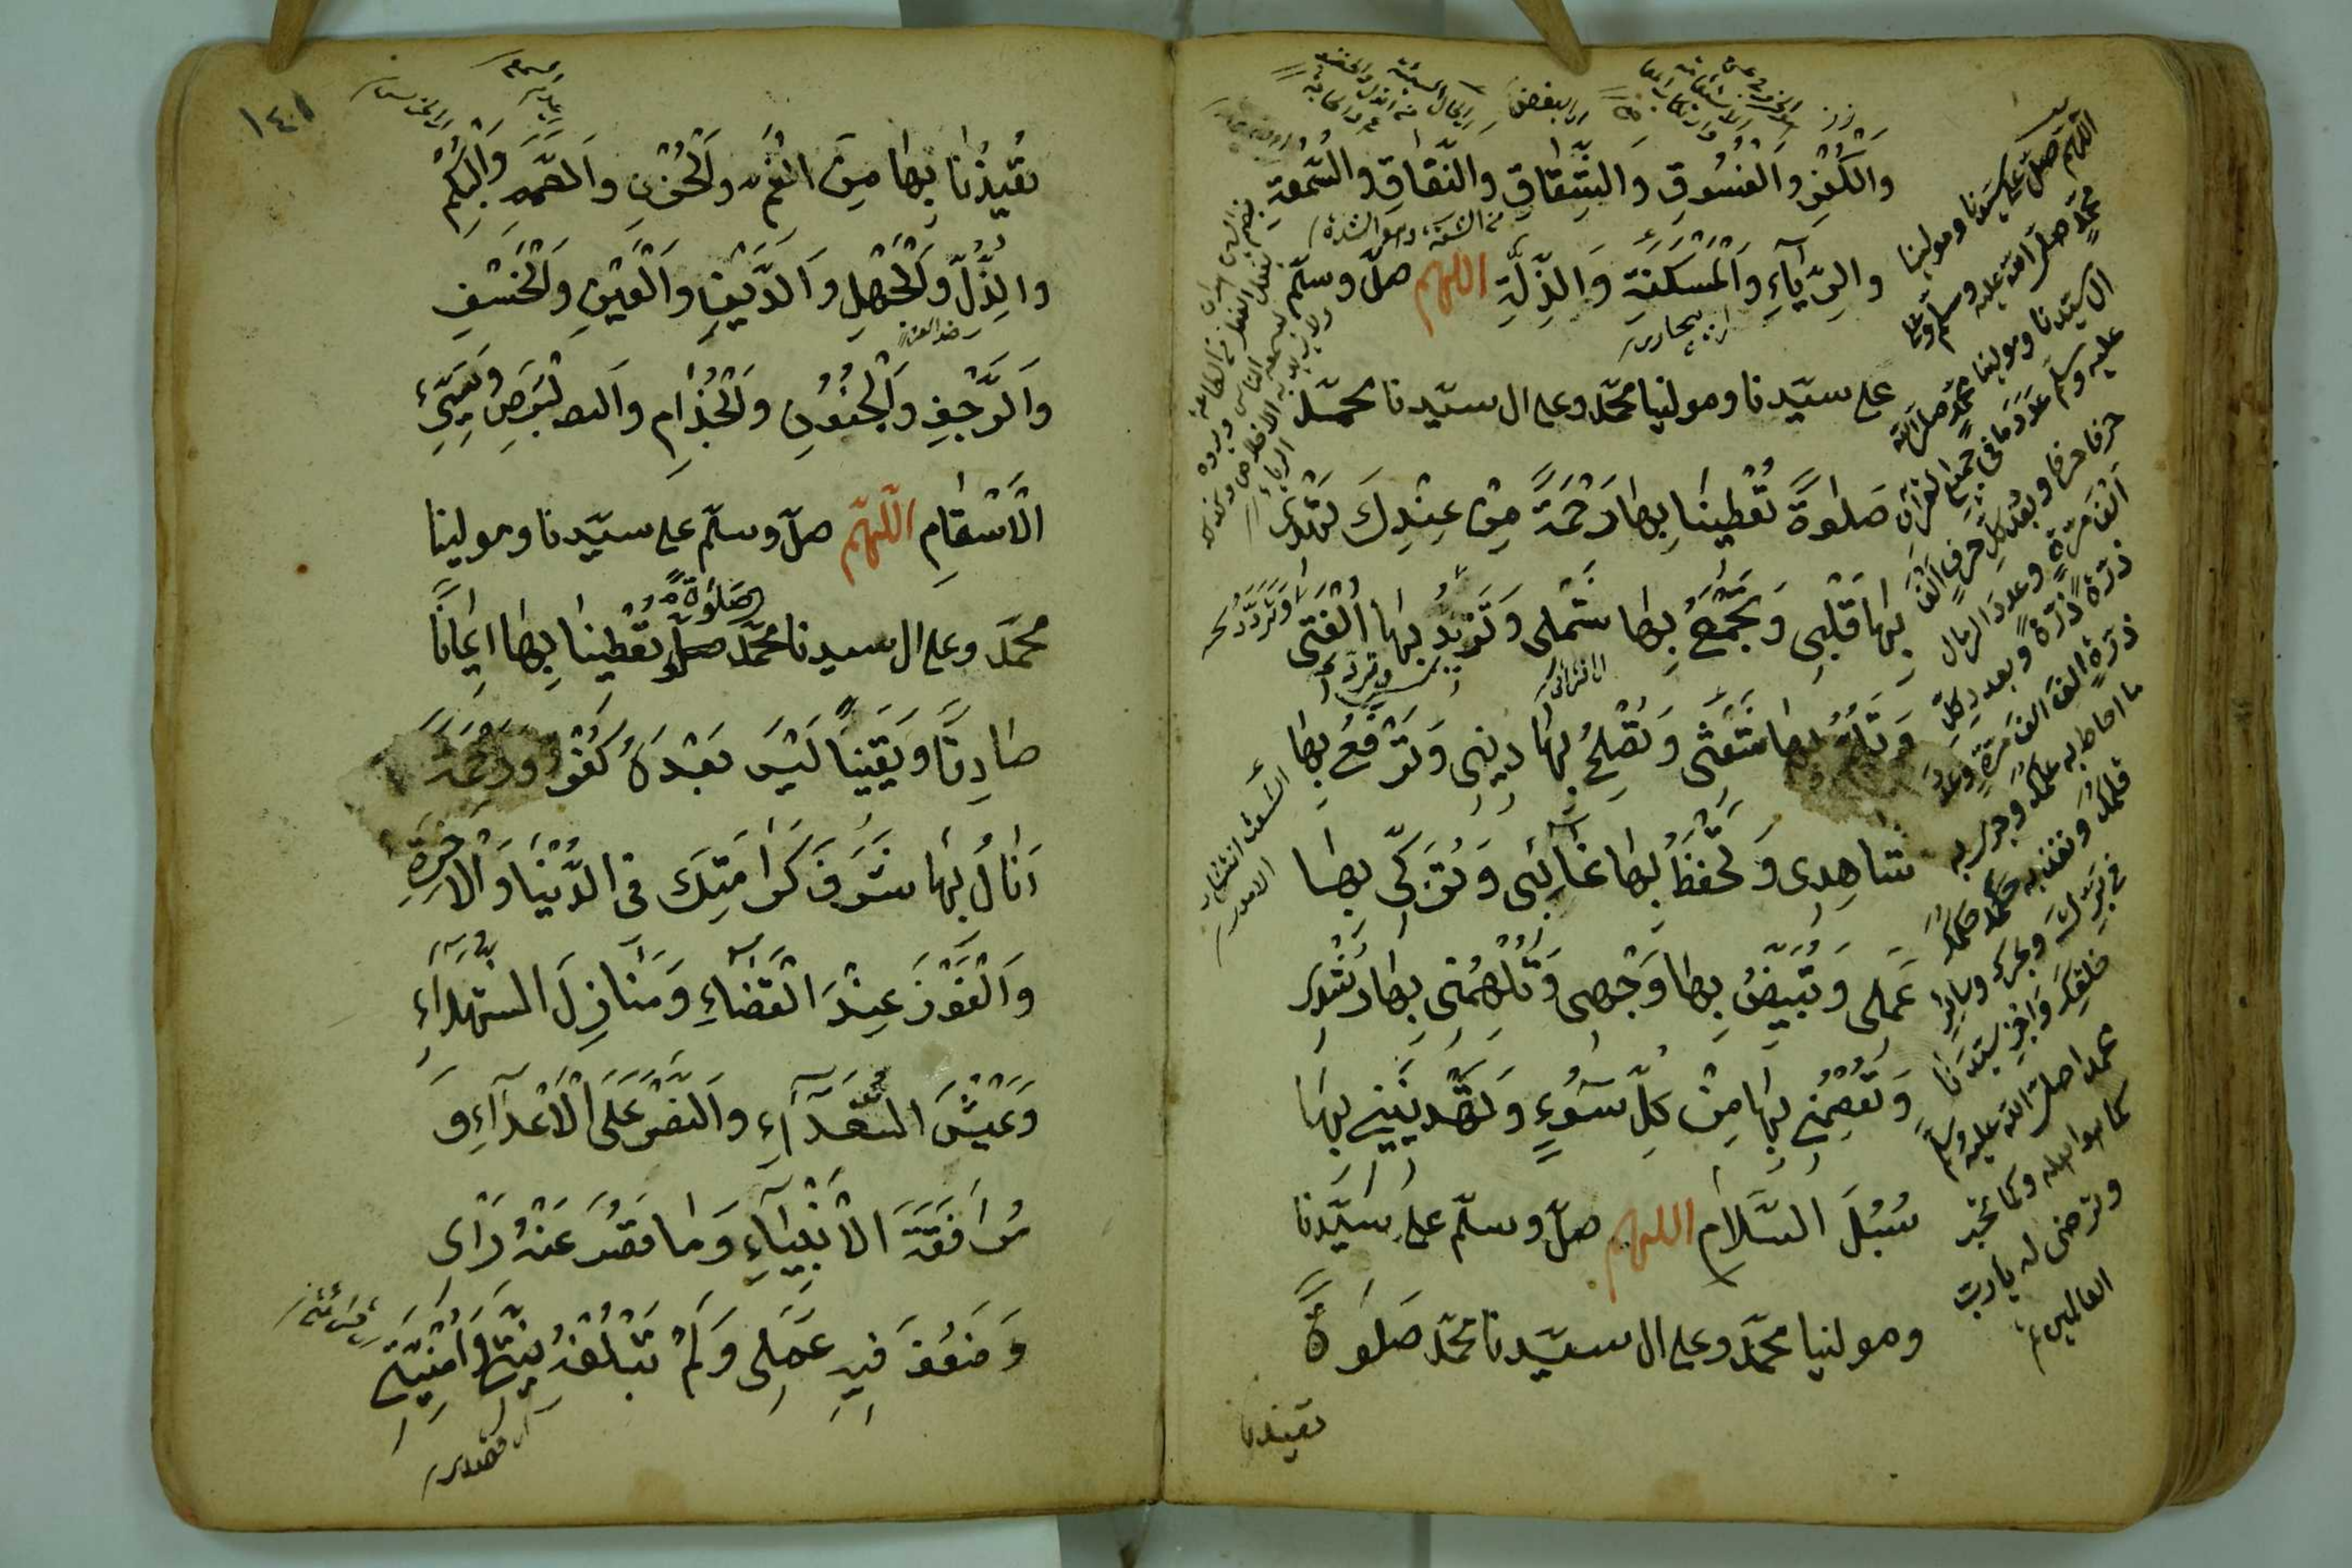 والكفر والفسوق والشقاق والنفاق والسمعة
والرياء والمسكنة والذلة اللهم صل وسلم
على سيدنا ومولينا محمد وعلى ال سيدنا محمد
صلوة تعطينا بها رحمة من عندك تهدى
بها قلبى وتجمع بها شملى وتزيد بها الفتى
وتلم بها شعثى وتصلح بها دينى وترفع بها
شاهدى وتحفظ بها غائبى وتزكى بها
عملى وتبيض بها وجهى وتلهمنى بها رشدى
وتعصمنى بها من كل سوء وتهدينى بها
سبل السلام اللهم صل وسلم على سيدنا
ومولينا محمد وعلى ال سيدنا محمد صلوة
تعيذنا
اللهم صل على سيدنا ومولينا
محمد صلى الله عليه وسلم وعلى
ال سيدنا ومولينا محمد صلى الله
عليه وسلم عدد ما فى جميع القرآن
حرفا حرفا وبعدد كل حرف الفا
الف مرة وعدد الرمال
ذرة ذرة وبعدد كل
ذرة الف الف مرة وعدد
ما احاط به علمك وجرى به
قلمك ونفذ به حكمك
فى برك وبحرك وسائر
خلقك واجز سيدنا
محمدا صلى الله عليه وسلم
كما هو اهله وكما تحب
وترضى له يا رب
العالمين
١٤١
تعيذنا بها من الغم والحزن والصمم والبكم
والذل والجهل والدين والعين والخسف
والرجف والجنون والجذام والبرص وسيئ
الاسقام اللهم صل وسلم على سيدنا ومولينا
محمد وعلى ال سيدنا محمد صلوة تعطينا بها ايمانا
صادقا ويقينا ليس بعده كفر ورحمة
انال بها شرف كرامتك فى الدنيا والاخرة
والفوز عند القضاء ومنازل الشهداء
وعيش السعداء والنصر على الاعداء و
مرافقة الانبياء وما قصر عنه رأى
وضعف فيه عملى ولم تبلغه نيتى وامنيتى